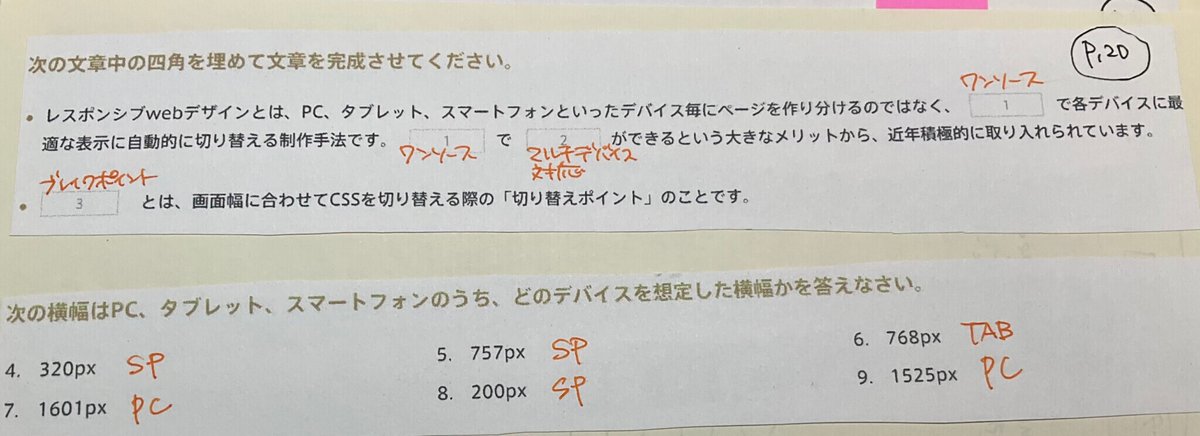 P,20
次の文章中の四角を埋めて文章を完成させてください。
ワンソース
• レスポンシブwebデザインとは、PC、タブレット、スマートフォンといったデバイス毎にページを作り分けるのではなく、 1 で各デバイスに最
適な表示に自動的に切り替える制作手法です。 1 で 2 ができるという大きなメリットから、近年積極的に取り入れられています。
ワンソース マルチデバイス
対応
ブレイクポイント
• 3 とは、画面幅に合わせてCSSを切り替える際の「切り替えポイント」のことです。
次の横幅はPC、タブレット、スマートフォンのうち、どのデバイスを想定した横幅かを答えなさい。
4. 320px SP 5. 757px SP 6. 768px TAB
7. 1601px PC 8. 200px SP 9. 1525px PC